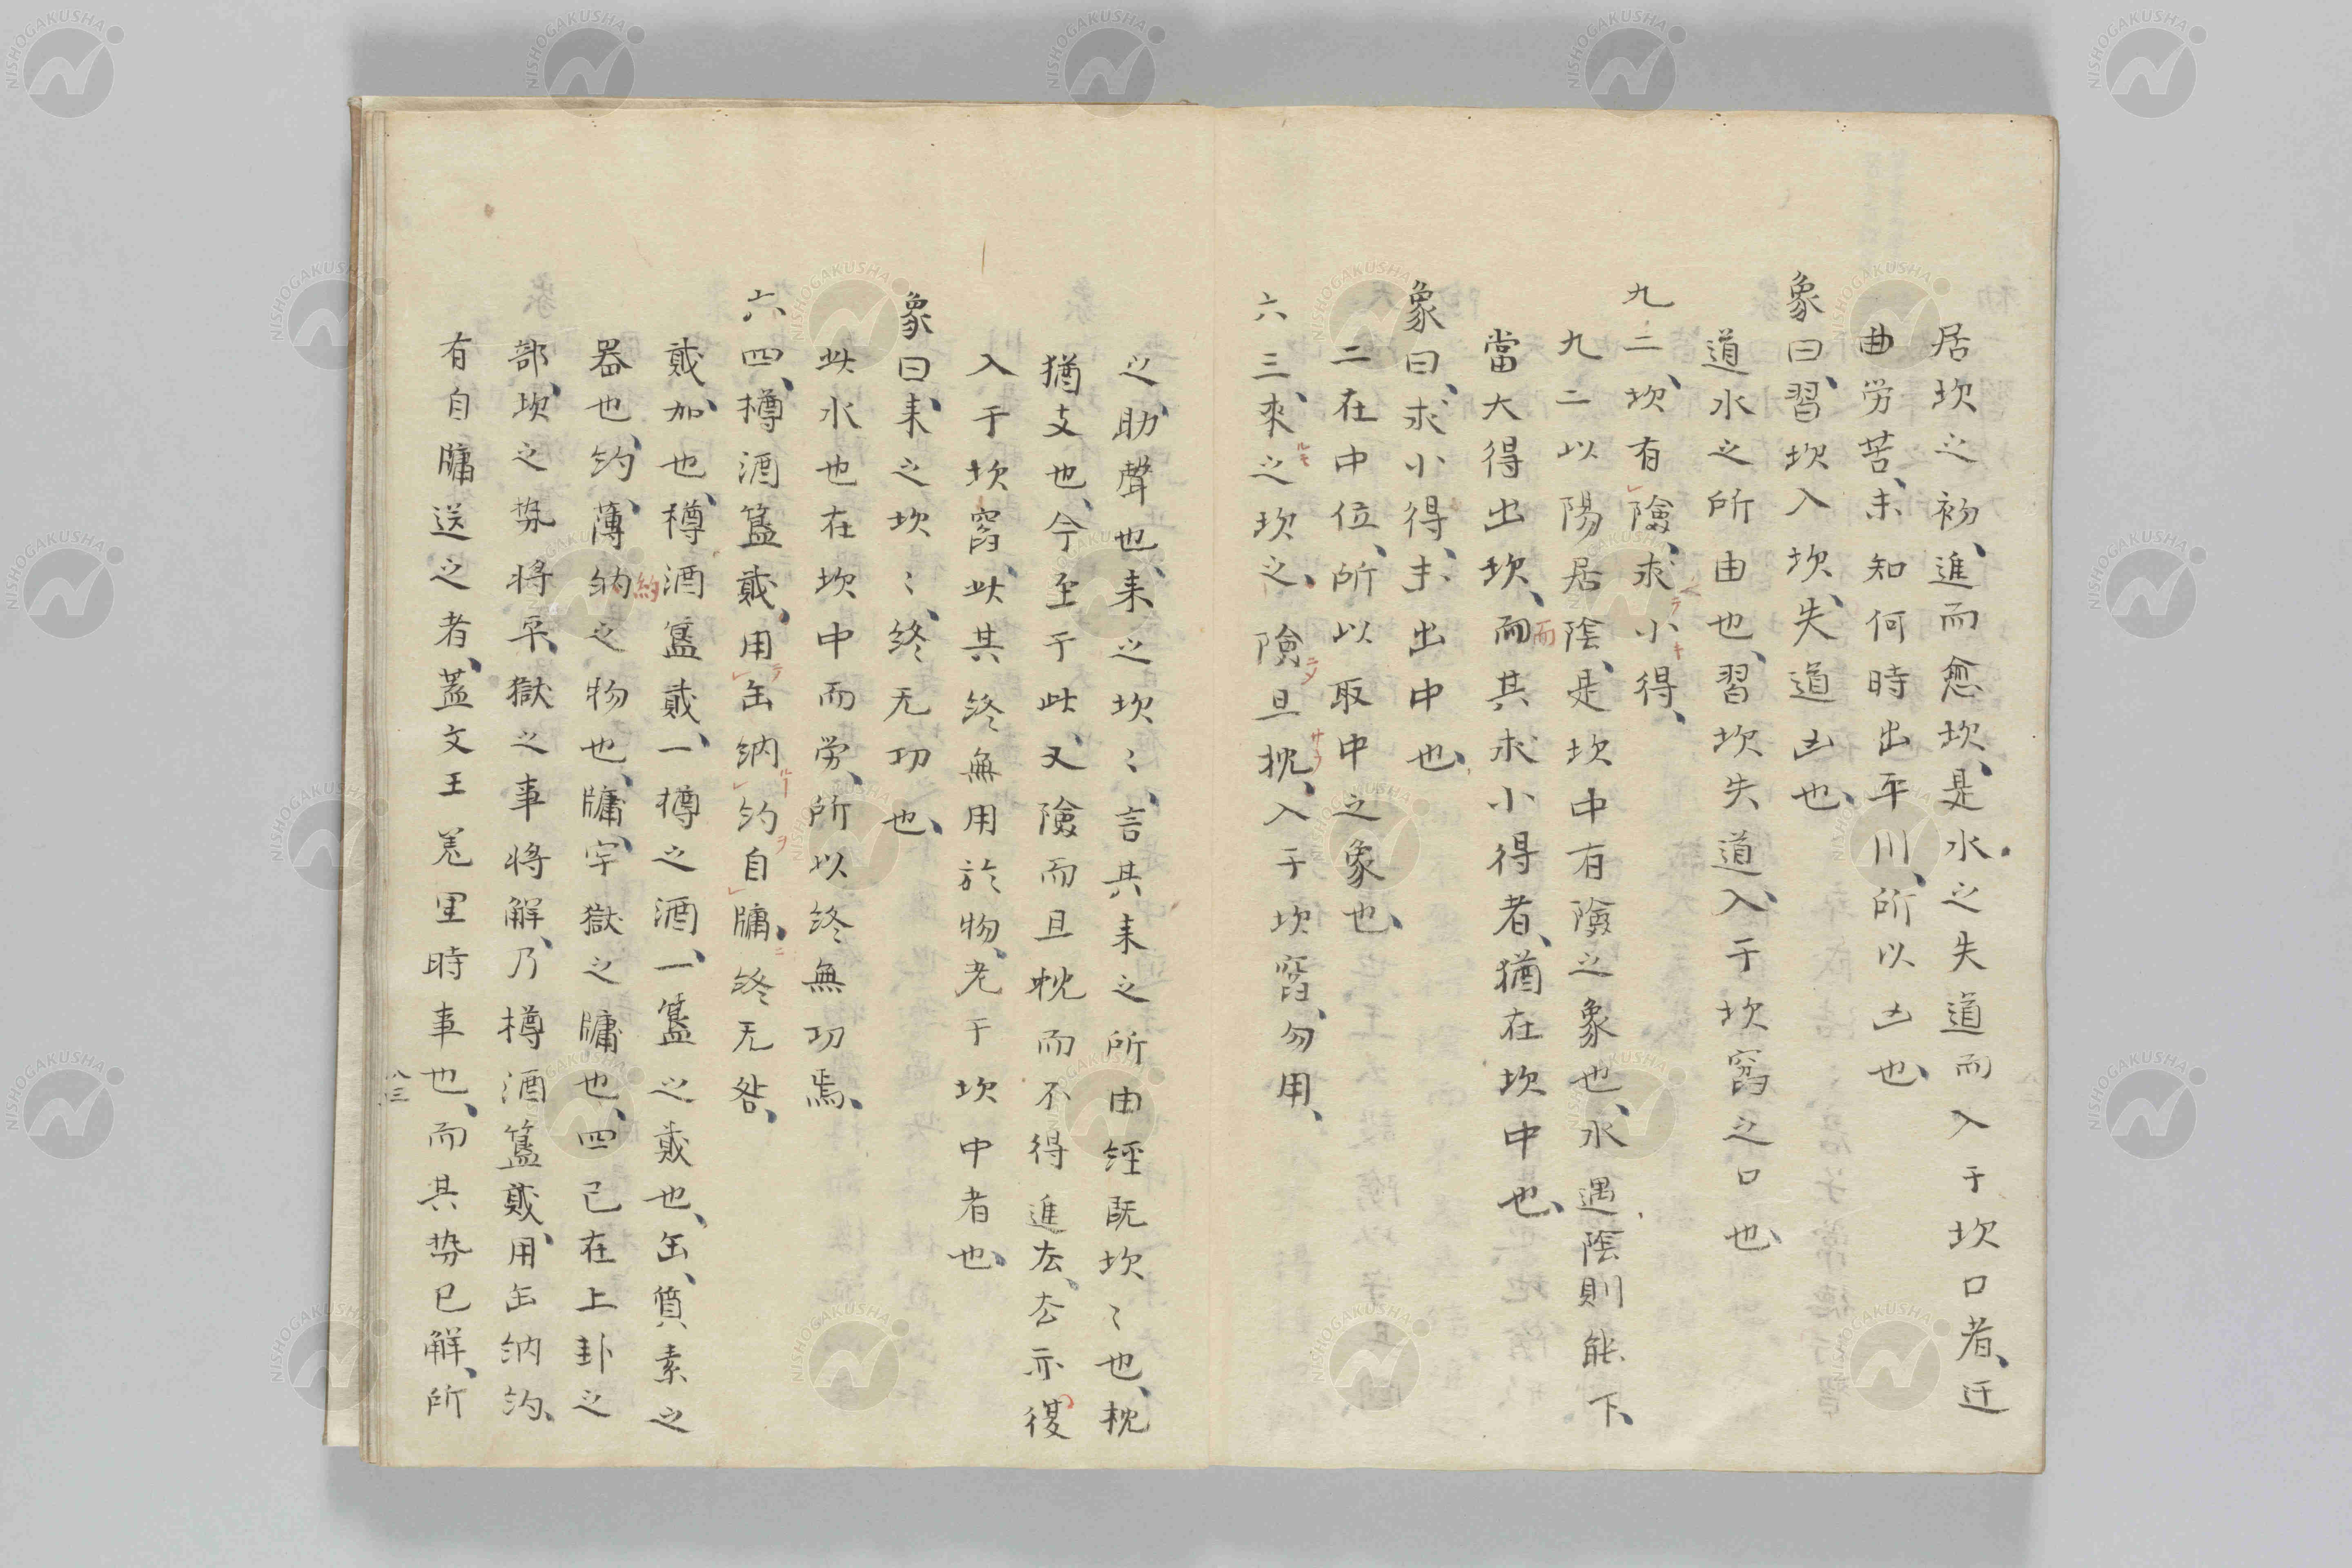 居坎之初、進而愈坎、是水之失道而入于坎口者、迂
曲労苦、未知何時出平川、所以凶也、
象曰、習坎入坎、失道凶也、
道水之所由也、習坎失道入、于坎窞之口也、
九二、坎有險、求小得、
九二以陽居陰、是坎中有險之象也、水遇陰則能下、
當大得出坎、而其求小得者、猶在坎中也、
象曰、求小得、未出中也、
二在中位、所以取中之象也、
六三、來之坎之、險且枕、入于坎窞、勿用、
之、助聲也、来之坎〻、言其来之所由経既坎〻也、枕
猶支也、今至于此、又險而且枕而不得進去、去亦復
入于坎窞、此其終無用於物、老于坎中者也、
象曰、来之坎〻、終无功也、
此水也在坎中而労、所以終無功焉、
六四、樽酒簋貳、用缶納約自牖、終无咎、
貳、加也、樽酒簋貳、一樽之酒、一簋之貳也、缶、質素之
器也、約、薄納之物也、牖、牢獄之牖也、四已在上卦之
部、坎之势将平、獄之事将解、乃樽酒簋貳、用缶納約、
有自牖送之者、蓋文王羑里時事也、而其势已解、所
約
而
八三
NISHOGAKUSHA